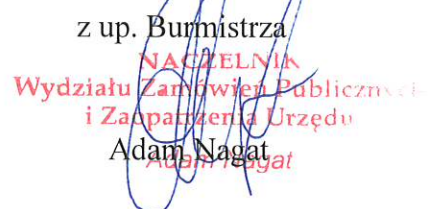 z up. Burmistrza
NACZELNIK
Wydziału Zamówień Publicznych
i Zaopatrzenia Urzędu
Adam Nagat
Adam Nagat